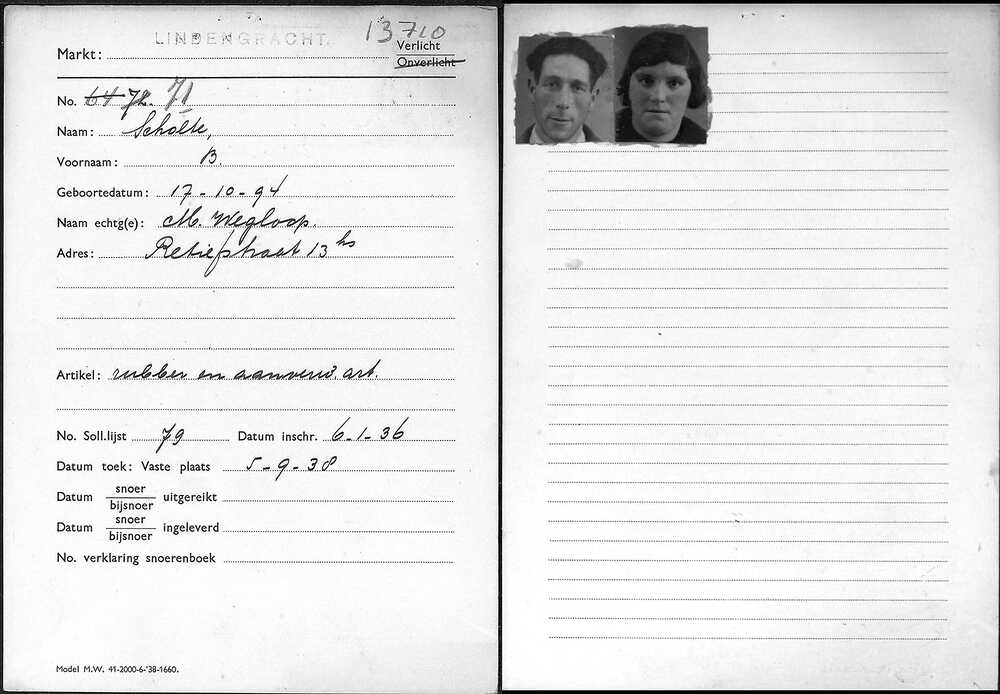 LINDENGRACHT. 13710
Markt: Verlicht
Onverlicht
No. 64 72. 71
Naam: Scholte,
Voornaam: B.
Geboortedatum: 17-10-94
Naam echtg(e): M. Wegloop.
Adres: Retiefstraat 13 hs
Artikel: rubber en aanverw. art.
No. Soll.lijst 79 Datum inschr. 6-1-36
Datum toek: Vaste plaats 5-9-38
Datum snoer bijsnoer uitgereikt
Datum snoer bijsnoer ingeleverd
No. verklaring snoerenboek
Model M.W. 41-2000-6-'38-1660.